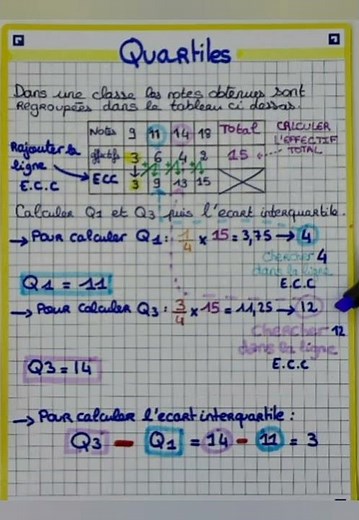 Quartiles
Dans une classe les notes obtenues sont
regroupées dans le tableau ci dessas.
Notes 9 11 14 18 Total
CALCULER L'EFFECTIF TOTAL
Rajouter la ligne E.C.C
effectifs 3 6 4 2 15
ECC 3 9 13 15
Calculer Q1 et Q3 puis l'écart interquartile.
→ Pour calculer Q1: 1/4 x 15 = 3,75 → 4
chercher 4
dans la ligne
E.C.C
Q1 = 11!
→ Pour calculer Q3: 3/4 x 15 = 11,25 → 12
chercher 12
dans la ligne
E.C.C
Q3 = 14
→ Pour calculer l'écart interquartile :
Q3 - Q1 = 14 - 11 = 3